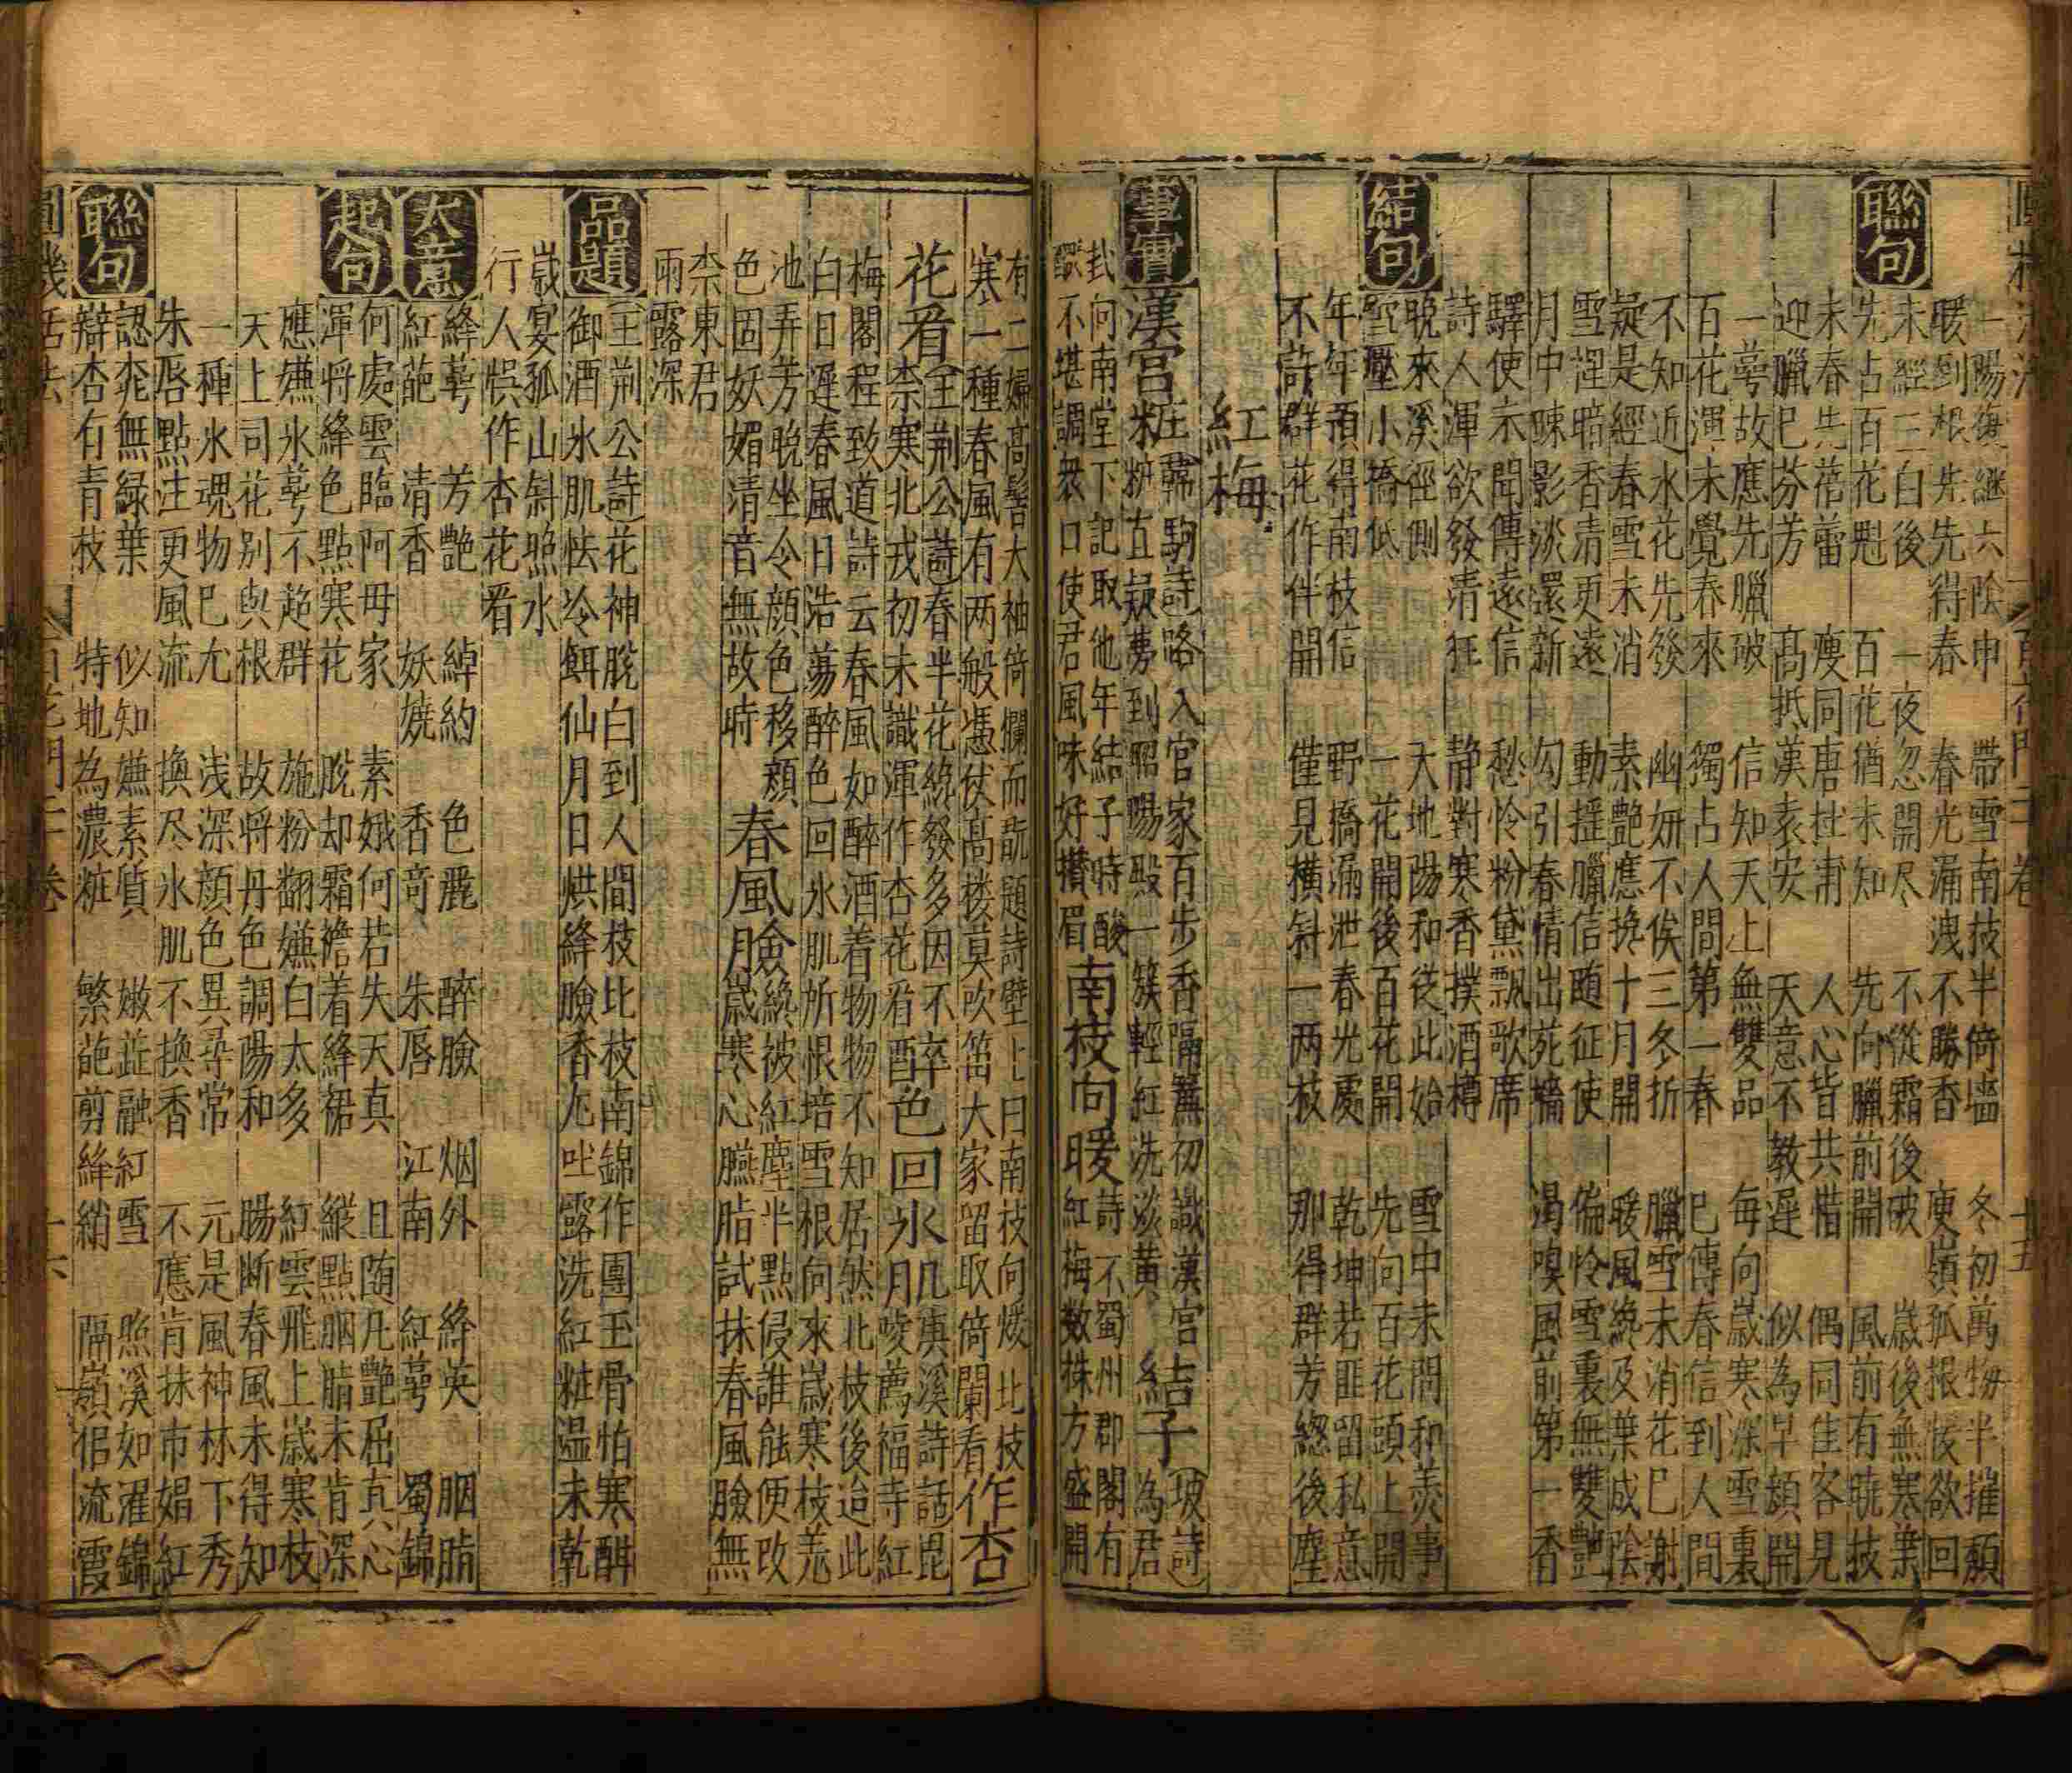 圓機活法 百花門二十卷 十五
一陽復継六隂申 帶雪南技半倚墻 冬初萬物半摧頽
暖到根先先得春 春光漏洩不勝香 庾嶺孤根恢欲回
未經三白後 一夜忽開尽 不從霜後破 歲後無寒葉
聯句 先占百花魁 百花猶未知 先向臘前開 風前有暁技
未春先蓓蕾 痩同唐杜甫 人心皆共惜 偶同佳客見
迎臘已芬芳 髙抵漢袁安 天意不教遲 似為早頽開
一萼故應先臘破 信知天上無雙品 每向歲寒深雪裏
百花渾未覺春來 獨占人間第一春 已傳春信到人間
不知近水花先發 幽妍不俟三冬折 臘雪未消花已謝
疑是經春雪未消 素艶應挽十月開 暖風纔及葉成隂
雪裡暗香清更遠 動揺臘信随征使 偏怜雪裏無雙艶
月中疎影淡還新 勾引春情出苑墻 渴嗅風前第一香
驛使未聞傳遠信 愁怜粉黛飄歌席
詩人渾欲發清狂 静對寒香撲酒樽
晩來溪徑側 天地陽和從此始 雪中未問和羹事
結句 雪壓小橋低 一花開後百花開 先向百花頭上開
年年預得南枝信 野橋漏泄春光處 乾坤若匪留私意
不許群花作伴開 僅見横斜一两枝 那得群芳總後塵
紅梅
事實 漢宮粧 韓駒詩路入官家百步香隔簾初識漢宮
粧直疑夢到昭陽殿一簇輕紅洗淡黄 結子 坡詩為君
栽向南堂下記取他年結子時酸
醲不堪調衆口使君風味好攢眉 南枝向暖 詩不蜀州郡閣有
紅梅数株方盛開
有二婦髙髻大袖倚欄而語題詩壁上曰南枝向煖北枝
寒一種春風有两般憑仗髙楼莫吹笛大家留取倚闌看 作杏
花看 王荆公詩春半花纔發多因不
柰寒北戎初未識渾作杏花看 酔色回氷肌 庚溪詩話毘
陵薦福寺紅
梅閣程致道詩云春風如醉酒着物物不知居然北枝後迨此
白日遅春風日浩蕩醉色回氷肌所恨培雪根向來歲寒枝羌
池弄芳晩坐令顔色移類
色固妖媚清音無故時 春風臉 纔被紅塵半點侵誰能便改
歲寒心臙脂試抹春風臉無
柰東君
雨露深
品題 王荆公詩花神脱白到人間枝比枝南錦作團玉骨怕寒酣
御酒氷肌怯冷餌仙月日烘絳臉香九吐露洗紅粧温未乾
歲宴孤山斜照水
行人悞作杏花看
大意 絳萼 芳艶 綽約 色麗 醉臉 烟外 絳英 胭脂
紅葩 清香 妖嬈 香竒 朱唇 江南 紅萼 蜀錦
起句 何處雲臨阿母家 素娥何若失天真 且随凡艶屈真心
渾將絳色點寒花 脱却霜襜着絳裙 縱點胭脂未肯深
應嫌氷萼不趂群 施粉翻嫌白太多 紅雲飛上歲寒枝
天上司花别與根 故将丹色調陽和 腸断春風未得知
一種氷魂物已尤 浅深顔色異尋常 元是風神林下秀
朱唇點注更風流 換尽氷肌不換香 不應肯抹市娼紅
認桃無緑葉 似知嫌素質 嫩蕋融紅雪 照溪如濯錦
聯句 辯杏有青枝 特地為濃粧 繁葩剪絳綃 隔嶺侶流霞
圓機活法 百花門二十卷 十六